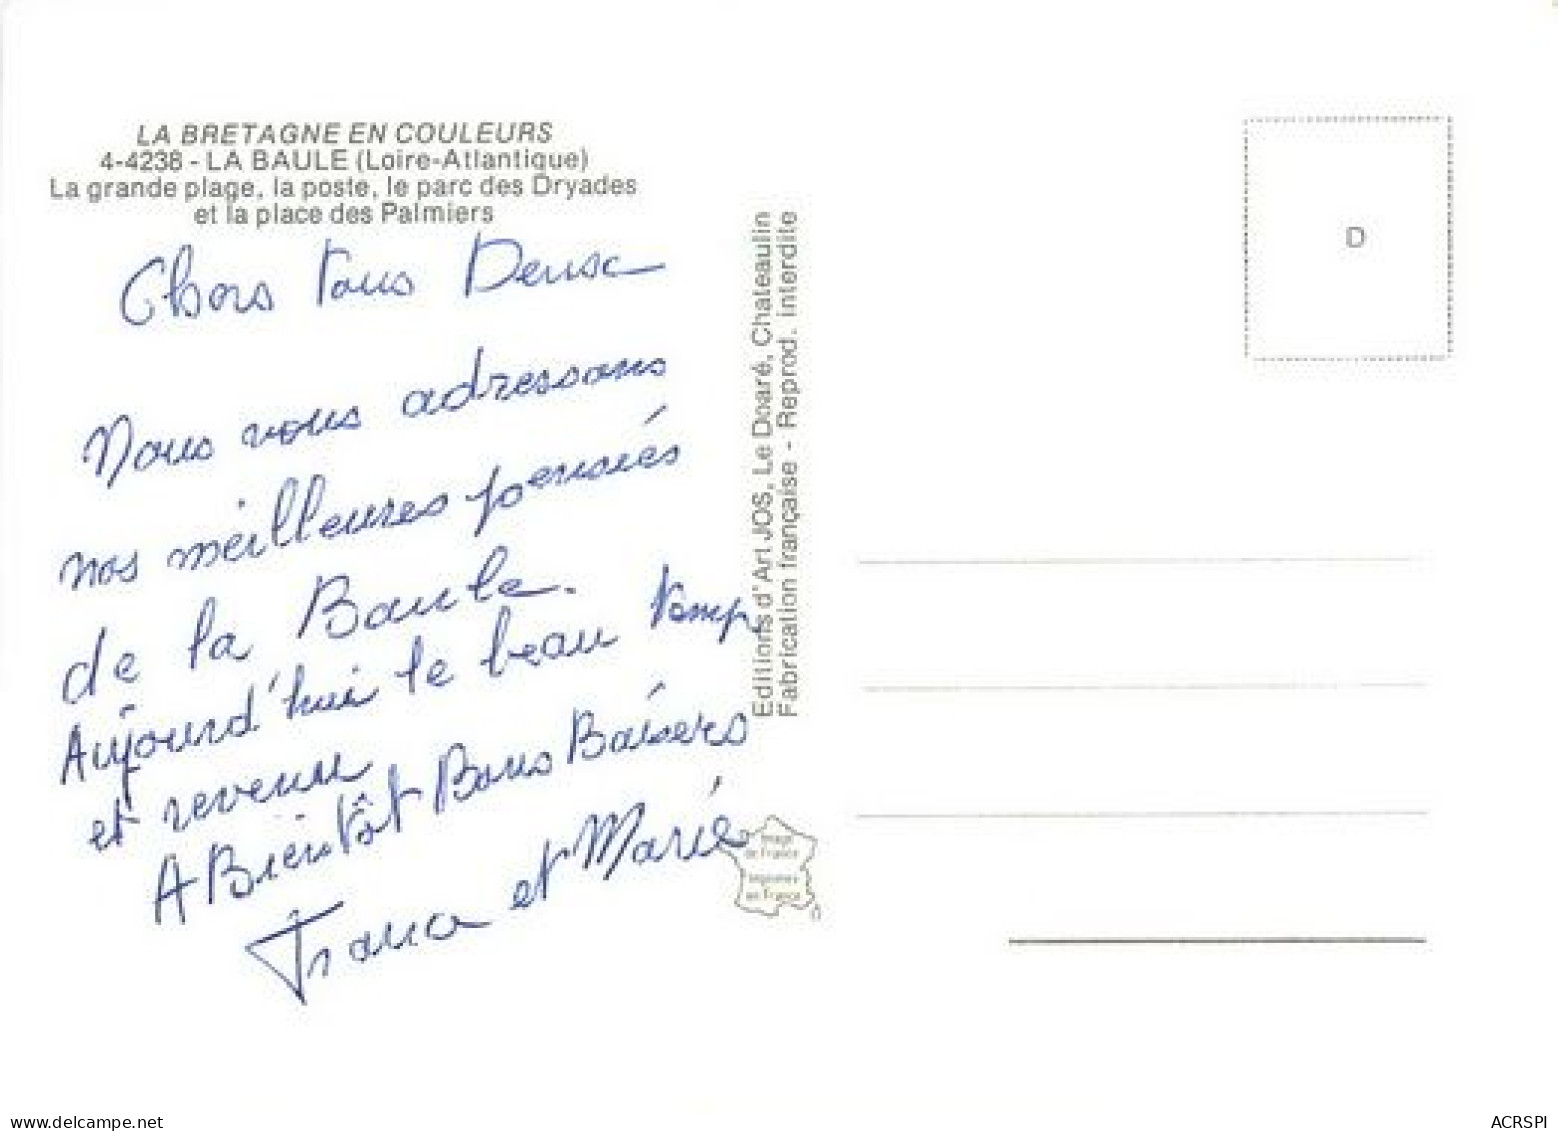 LA BRETAGNE EN COULEURS
4-4238 - LA BAULE (Loire-Atlantique)
La grande plage, la poste, le parc des Dryades
et la place des Palmiers
Chers tous Deux
Nous vous adressons
nos meilleures pensiés
de la Baule.
Aujourd'hui le beau temp
et revenu
A Bientôt Bons Baisers
et Marie
Editions d'Art JOS, Le Doaré, Chateaulin
Fabrication française - Reprod. interdite
D
Image
de France
Imprimée
en France
www.delcampe.net
ACRSPI